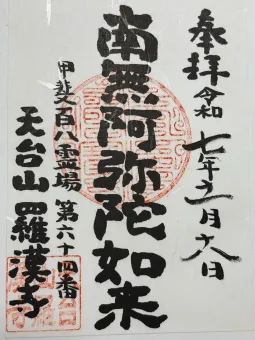 奉拝 令和七年五月十八日
南無阿弥陀如来
甲斐百八霊場 第六十四番
天台山 羅漢寺